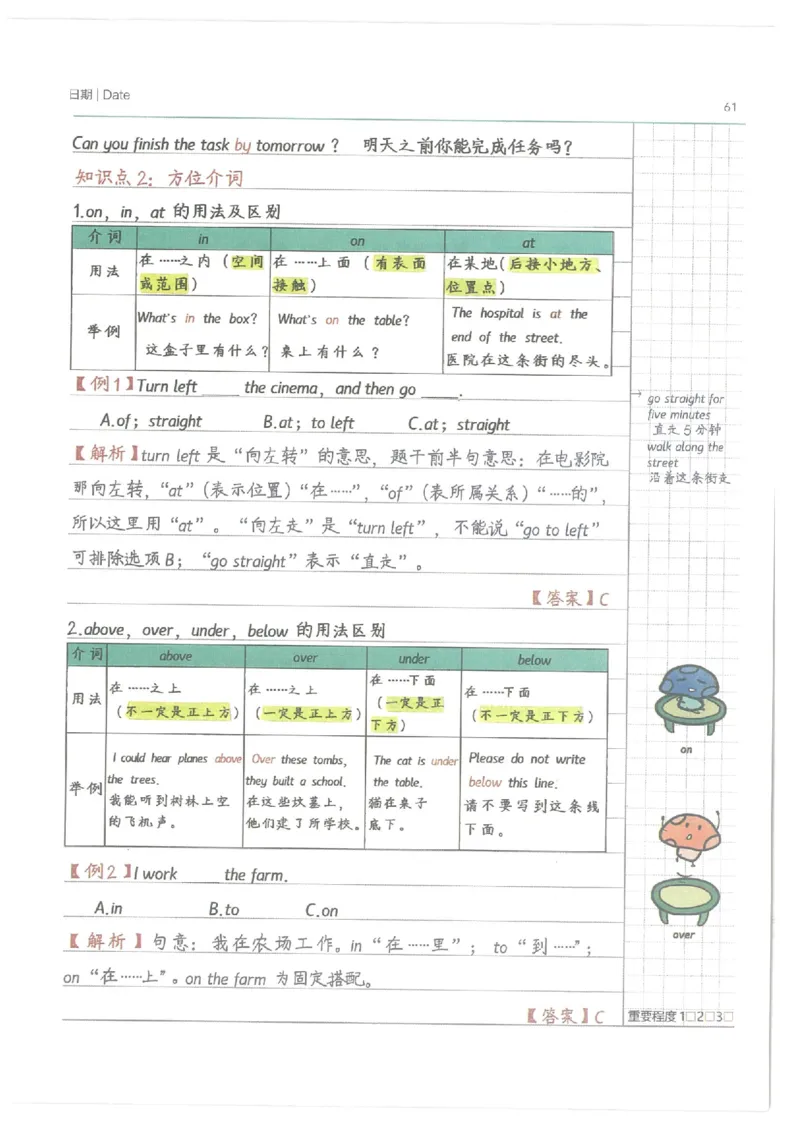 日期 | Date
61
Can you finish the task by tomorrow？ 明天之前你能完成任务吗？
知识点2：方位介词
1.on，in，at 的用法及区别
介词 in on at
用法 在……之内（空间或范围） 在……上面（有表面接触） 在某地（后接小地方、位置点）
举例 What's in the box? 这盒子里有什么？ What's on the table? 桌上有什么？ The hospital is at the end of the street. 医院在这条街的尽头。
【例1】Turn left ____ the cinema，and then go ____.
A.of；straight B.at；to left C.at；straight
【解析】turn left 是“向左转”的意思，题干前半句意思：在电影院
那向左转，“at”（表示位置）“在……”，“of”（表所属关系）“……的”，
所以这里用“at”。“向左走”是“turn left”，不能说“go to left”
可排除选项B；“go straight”表示“直走”。
【答案】C
→ go straight for
five minutes
直走5分钟
walk along the
street
沿着这条街走
2.above，over，under，below 的用法区别
介词 above over under below
用法 在……之上（不一定是正上方） 在……之上（一定是正上方） 在……下面（一定是正下方） 在……下面（不一定是正下方）
举例 I could hear planes above the trees. 我能听到树林上空的飞机声。 Over these tombs, they built a school. 在这些坟墓上，他们建了所学校。 The cat is under the table. 猫在桌子底下。 Please do not write below this line. 请不要写到这条线下面。
on
over
【例2】I work ____ the farm.
A.in B.to C.on
【解析】句意：我在农场工作。in“在……里”；to“到……”；
on“在……上”。on the farm 为固定搭配。
【答案】C
重要程度 1□2□3□